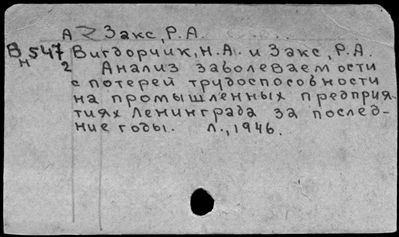 А Закс, Р.А.
Вн547 Вигдорчик, Н.А. и Закс, Р.А.
2 Анализ заболеваемости
с потерей трудоспособности
на промышленных предприя-
тиях Ленинграда за послед-
ние годы. Л., 1946.